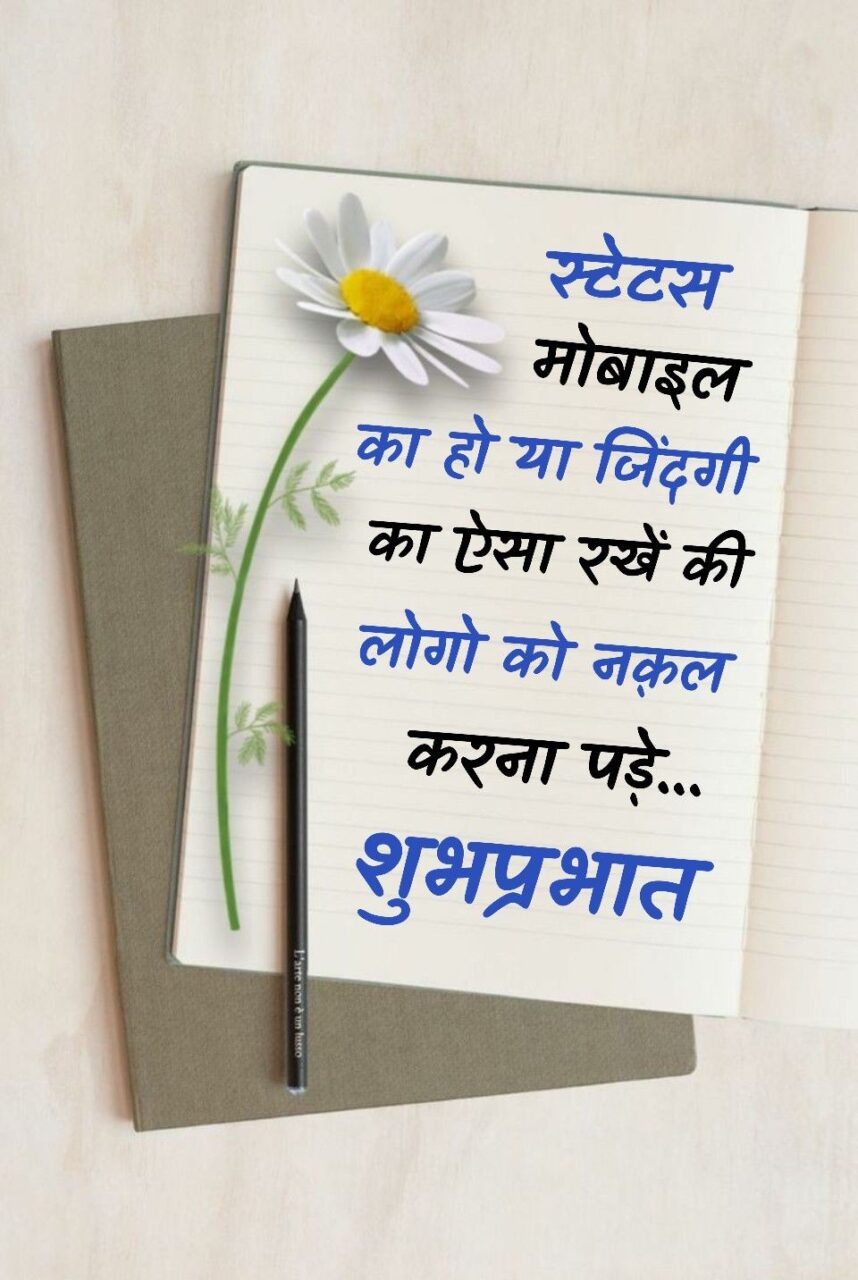 स्टेटस
मोबाइल
का हो या जिंदगी
का ऐसा रखें की
लोगो को नक़ल
करना पड़े...
शुभप्रभात
L'arte non è un lusso